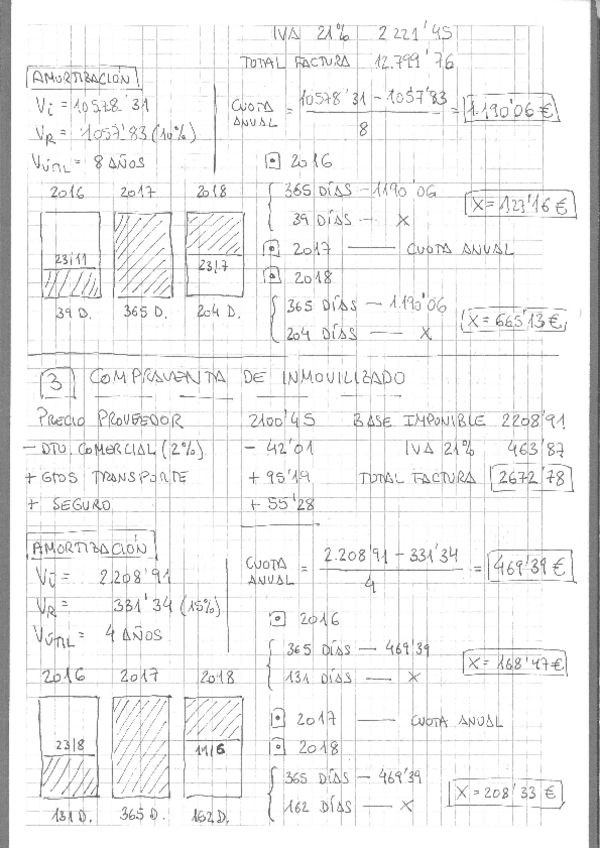 IVA 21% 2221'45
TOTAL FACTURA 12.799'76
AMORTIZACIÓN
Vi = 10578'31
VR = 1057'83 (10%)
VÚTIL = 8 AÑOS
CUOTA ANUAL = 10578'31 - 1057'83 / 8 = 1.190'06 €
2016 2017 2018
23/11
23/7
39 D. 365 D. 204 D.
2016
365 DÍAS — 1190'06
39 DÍAS — X
X = 127'16 €
2017 — CUOTA ANUAL
2018
365 DÍAS — 1.190'06
204 DÍAS — X
X = 665'13 €
3 COMPRAVENTA DE INMOVILIZADO
PRECIO PROVEEDOR 2100'45 BASE IMPONIBLE 2208'91
- DTO. COMERCIAL (2%) - 42'01 IVA 21% 463'87
+ GTOS TRANSPORTE + 95'19 TOTAL FACTURA 2672'78
+ SEGURO + 55'28
AMORTIZACIÓN
Vi = 2.208'91
VR = 331'34 (15%)
VÚTIL = 4 AÑOS
CUOTA ANUAL = 2.208'91 - 331'34 / 4 = 469'39 €
2016 2017 2018
23/8
11/6
131 D. 365 D. 162 D.
2016
365 DÍAS — 469'39
131 DÍAS — X
X = 168'47 €
2017 — CUOTA ANUAL
2018
365 DÍAS — 469'39
162 DÍAS — X
X = 208'33 €